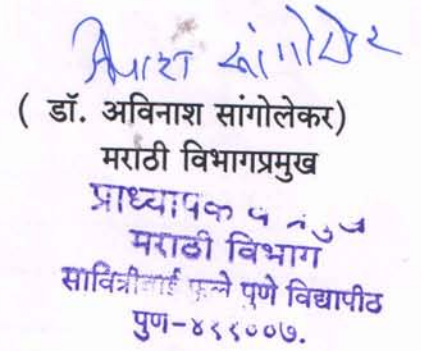 अविनाश सांगोलेकर
( डॉ. अविनाश सांगोलेकर)
मराठी विभागप्रमुख
प्राध्यापक व
मराठी विभाग
सावित्रीबाई फुले पुणे विद्यापीठ
पुणे-४११००७.